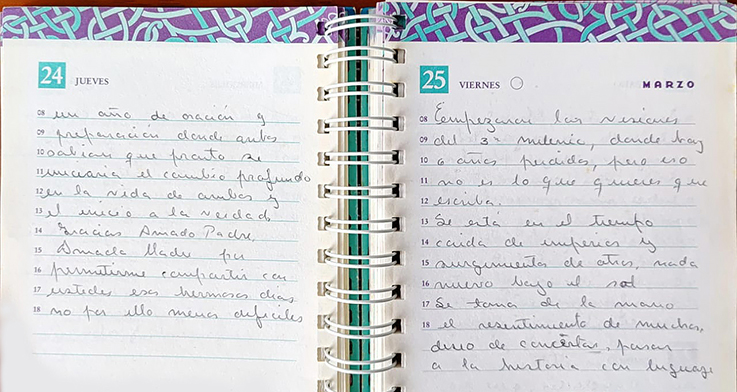 24 JUEVES
08 un año de oración y
09 preparación donde ambos
10 sabían que pronto se
11 iniciaría el cambio profundo
12 en la vida de ambos y
13 el inicio a la verdad
14 Gracias Amado Padre,
15 Amada Madre por
16 permitirme compartir con
17 ustedes esos hermosos días
18 no por ello menos difíciles
25 VIERNES MARZO
08 Empezaron las visiones
09 del 3er milenio, donde hay
10 años perdidos, pero eso
11 no es lo que quieres que
12 escriba.
13 Se está en el tiempo
14 caída de imperios y
15 surgimiento de otros, nada
16 nuevo bajo el sol
17 Se toma de la mano
18 el resentimiento de muchos,
deseo de pasar
a la historia con lenguaje